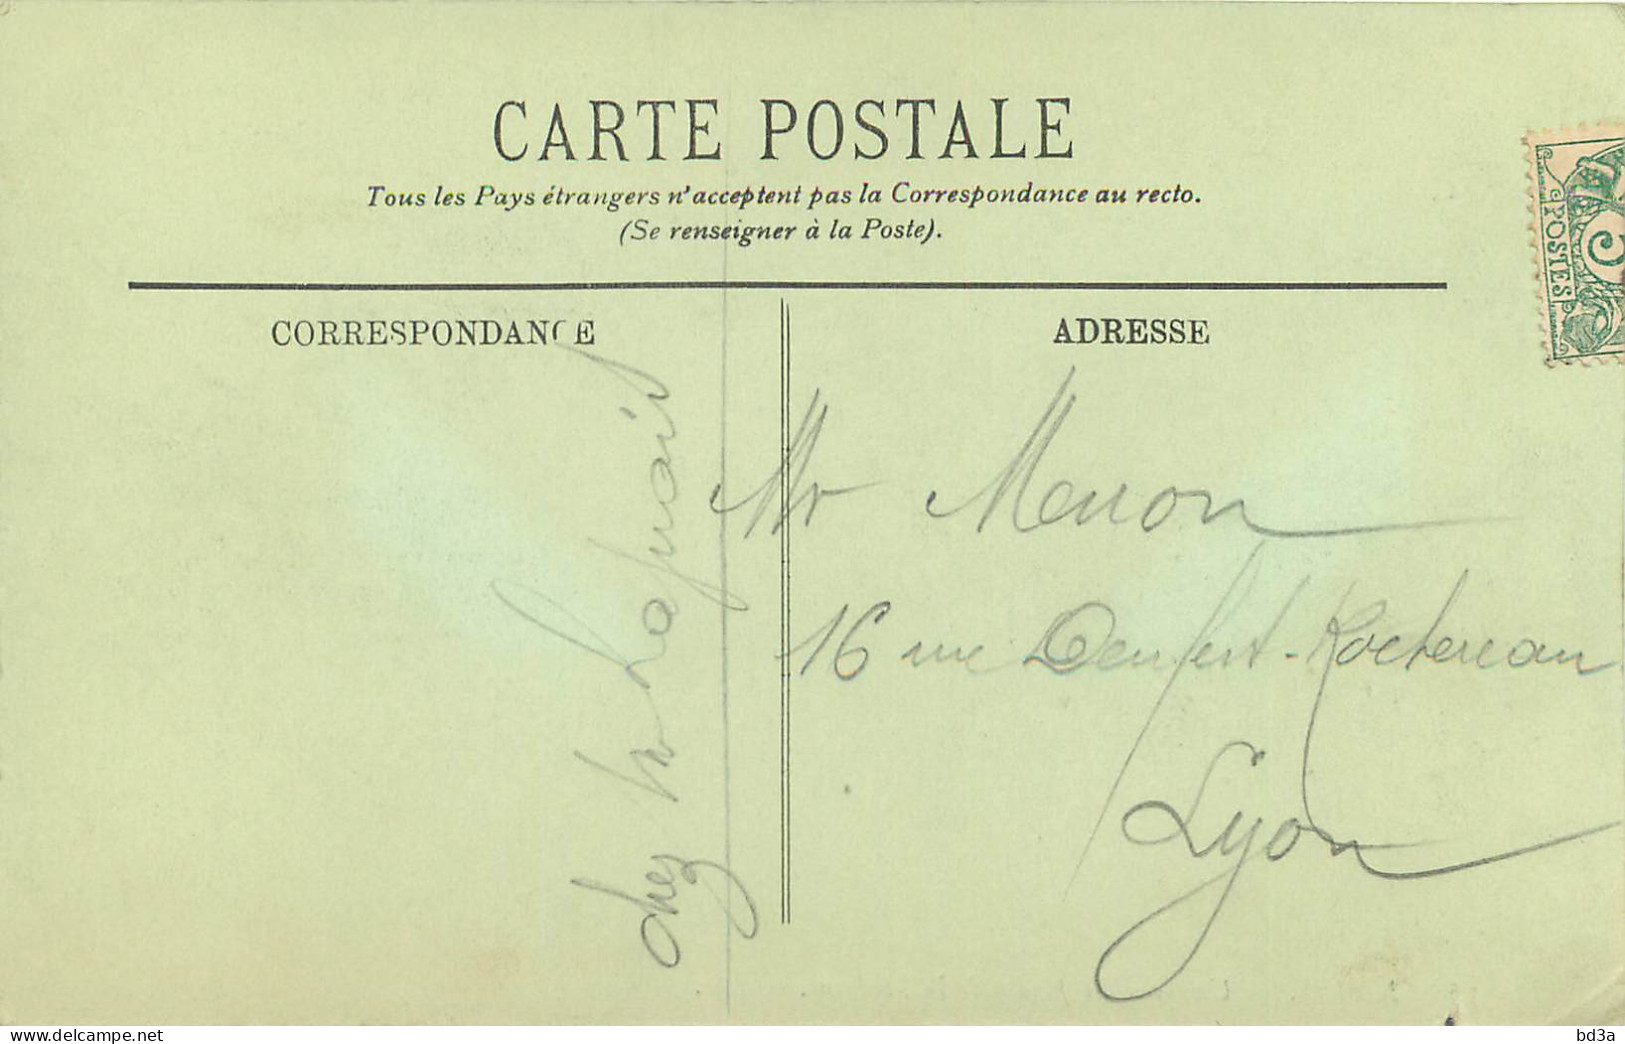 CARTE POSTALE
Tous les Pays étrangers n'acceptent pas la Correspondance au recto.
(Se renseigner à la Poste).
CORRESPONDANCE
ADRESSE
POSTES
5
chez Mr
Mr Menon
16 rue Denfert-Rochereau
Lyon
www.delcampe.net
bd3a